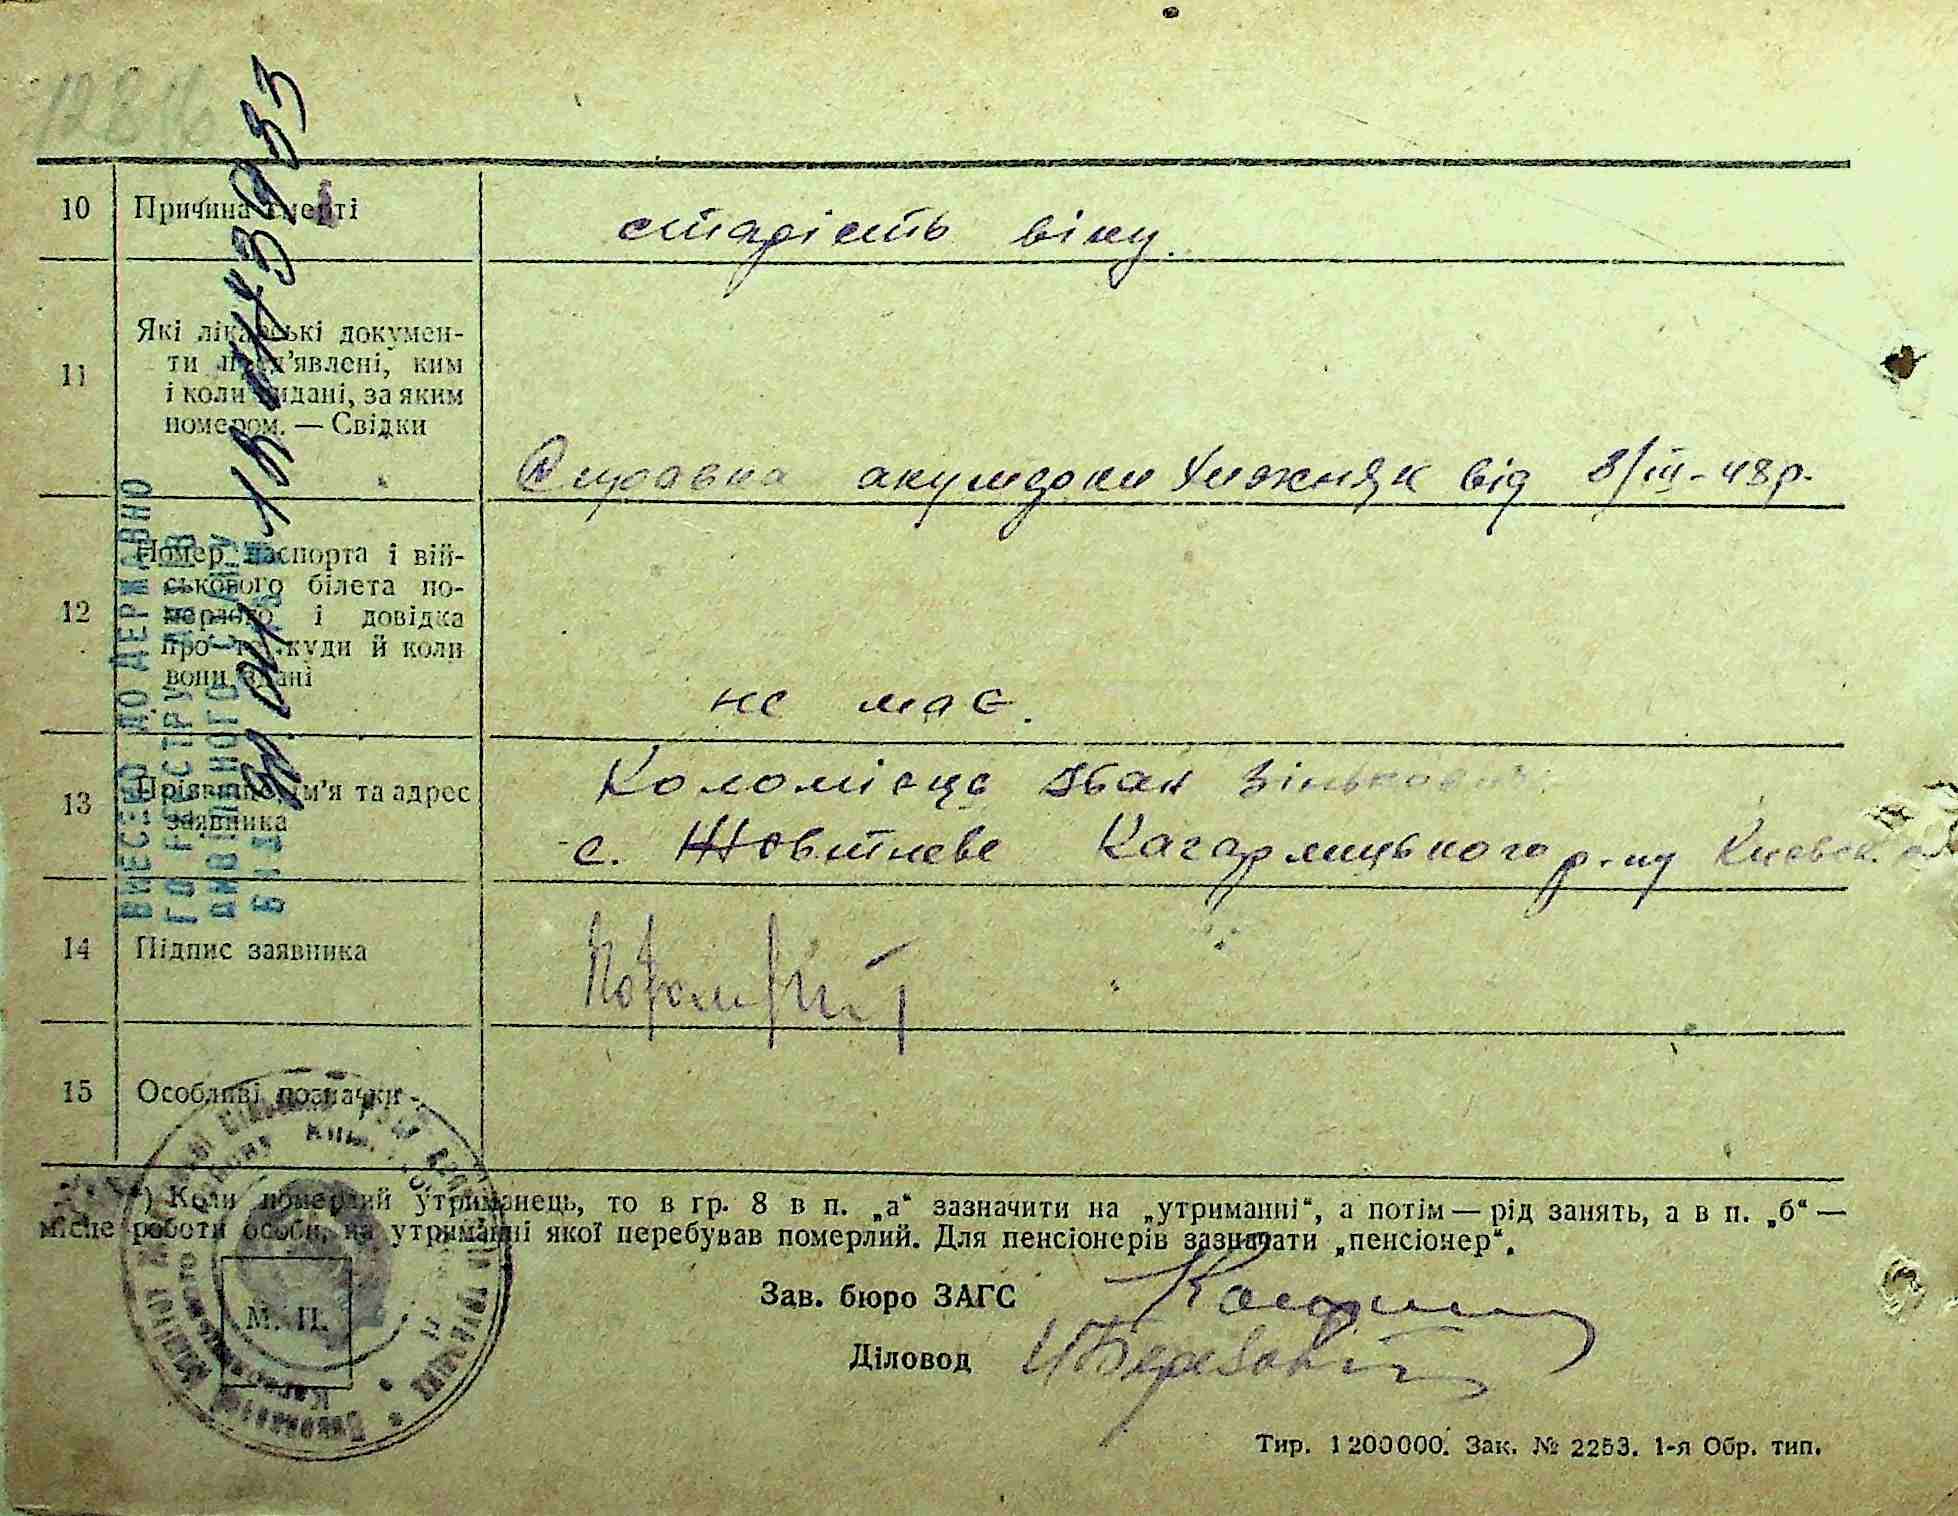 12816
10 Причина смерті старість віку.
11 Які лікарські докумен-
ти пред'явлені, ким
і коли видані, за яким
номером. — Свідки
Справка акушерки Хижняк від 8/III-48р.
12 Номер паспорта і вій-
ськового білета по-
мерлого і довідка
про те, куди й коли
вони здані
не має.
13 Прізвище, ім'я та адрес
заявника
Коломієць Іван Зінькович
с. Жовтневе Кагарлицького р-ну Київськ.
14 Підпис заявника
15 Особливі позначки
ВНЕСЕНО ДО ДЕРЖАВНО
ГО РЕЄСТРУ АКТІВ
ЦИВІЛЬНОГО СТАНУ
ВІД
*) Коли померлий утриманець, то в гр. 8 в п. „а“ зазначити на „утриманні“, а потім — рід занять, а в п. „б“ —
місце роботи особи, на утриманні якої перебував померлий. Для пенсіонерів зазначати „пенсіонер“.
М. П.
Зав. бюро ЗАГС
Діловод
Тир. 1200000. Зак. № 2253. 1-я Обр. тип.